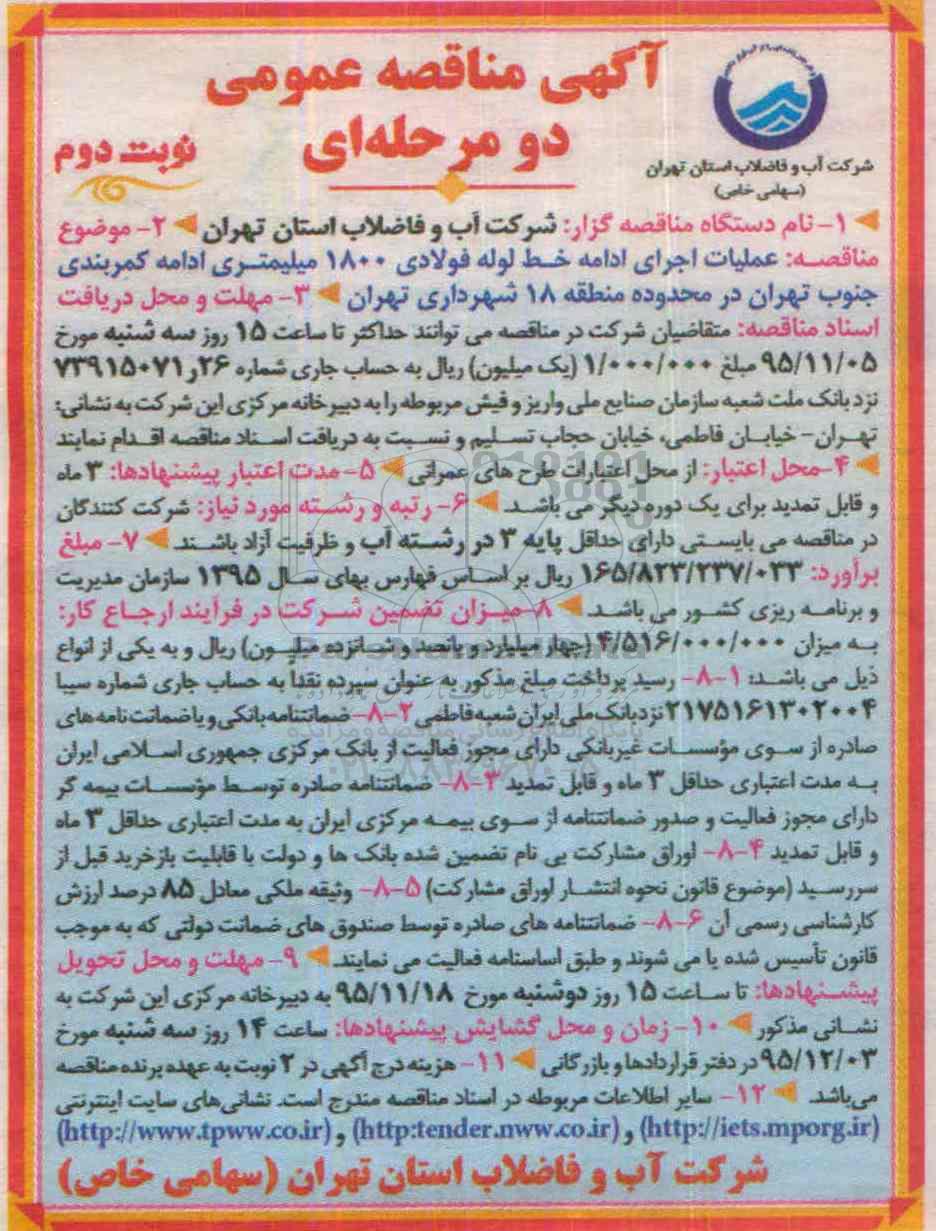 آگهی مناقصه عمومی
دو مرحله‌ای
نوبت دوم
شرکت آب و فاضلاب استان تهران
(سهامی خاص)
۱- نام دستگاه مناقصه گزار: شرکت آب و فاضلاب استان تهران ۲- موضوع
مناقصه: عملیات اجرای ادامه خط لوله فولادی ۱۸۰۰ میلیمتری ادامه کمربندی
جنوب تهران در محدوده منطقه ۱۸ شهرداری تهران ۳- مهلت و محل دریافت
اسناد مناقصه: متقاضیان شرکت در مناقصه می توانند حداکثر تا ساعت ۱۵ روز سه شنبه مورخ
۹۵/۱۱/۰۵ مبلغ ۱/۰۰۰/۰۰۰ (یک میلیون) ریال به حساب جاری شماره ۷۳۹۱۵۰۷۱ر۲۶
نزد بانک ملت شعبه سازمان صنایع ملی واریز و فیش مربوطه را به دبیرخانه مرکزی این شرکت به نشانی:
تهران- خیابان فاطمی، خیابان حجاب تسلیم و نسبت به دریافت اسناد مناقصه اقدام نمایند
۴- محل اعتبار: از محل اعتبارات طرح های عمرانی ۵- مدت اعتبار پیشنهادها: ۳ ماه
و قابل تمدید برای یک دوره دیگر می باشد. ۶- رتبه و رشته مورد نیاز: شرکت کنندگان
در مناقصه می بایستی دارای حداقل پایه ۳ در رشته آب و ظرفیت آزاد باشند. ۷- مبلغ
برآورد: ۱۶۵/۸۲۳/۲۳۷/۰۳۳ ریال بر اساس فهارس بهای سال ۱۳۹۵ سازمان مدیریت
و برنامه ریزی کشور می باشد. ۸- میزان تضمین شرکت در فرآیند ارجاع کار:
به میزان ۴/۵۱۶/۰۰۰/۰۰۰ (چهار میلیارد و پانصد و شانزده میلیون) ریال و به یکی از انواع
ذیل می باشد: ۱-۸- رسید پرداخت مبلغ مذکور به عنوان سپرده نقداً به حساب جاری شماره سیبا
۲۱۷۵۱۶۱۳۰۲۰۰۴ نزد بانک ملی ایران شعبه فاطمی ۲-۸- ضمانتنامه بانکی و یا ضمانت نامه های
صادره از سوی مؤسسات غیربانکی دارای مجوز فعالیت از بانک مرکزی جمهوری اسلامی ایران
به مدت اعتباری حداقل ۳ ماه و قابل تمدید ۳-۸- ضمانتنامه صادره توسط مؤسسات بیمه گر
دارای مجوز فعالیت و صدور ضمانتنامه از سوی بیمه مرکزی ایران به مدت اعتباری حداقل ۳ ماه
و قابل تمدید ۴-۸- اوراق مشارکت بی نام تضمین شده بانک ها و دولت با قابلیت بازخرید قبل از
سررسید (موضوع قانون نحوه انتشار اوراق مشارکت) ۵-۸- وثیقه ملکی معادل ۸۵ درصد ارزش
کارشناسی رسمی آن ۶-۸- ضمانتنامه های صادره توسط صندوق های ضمانت دولتی که به موجب
قانون تأسیس شده یا می شوند و طبق اساسنامه فعالیت می نمایند. ۹- مهلت و محل تحویل
پیشنهادها: تا ساعت ۱۵ روز دوشنبه مورخ ۹۵/۱۱/۱۸ به دبیرخانه مرکزی این شرکت به
نشانی مذکور ۱۰- زمان و محل گشایش پیشنهادها: ساعت ۱۴ روز سه شنبه مورخ
۹۵/۱۲/۰۳ در دفتر قراردادها و بازرگانی ۱۱- هزینه درج آگهی در ۲ نوبت به عهده برنده مناقصه
می‌باشد. ۱۲- سایر اطلاعات مربوطه در اسناد مناقصه مندرج است. نشانی‌های سایت اینترنتی
(http://iets.mporg.ir) و (http:tender.nww.co.ir) و (http://www.tpww.co.ir)
شرکت آب و فاضلاب استان تهران (سهامی خاص)